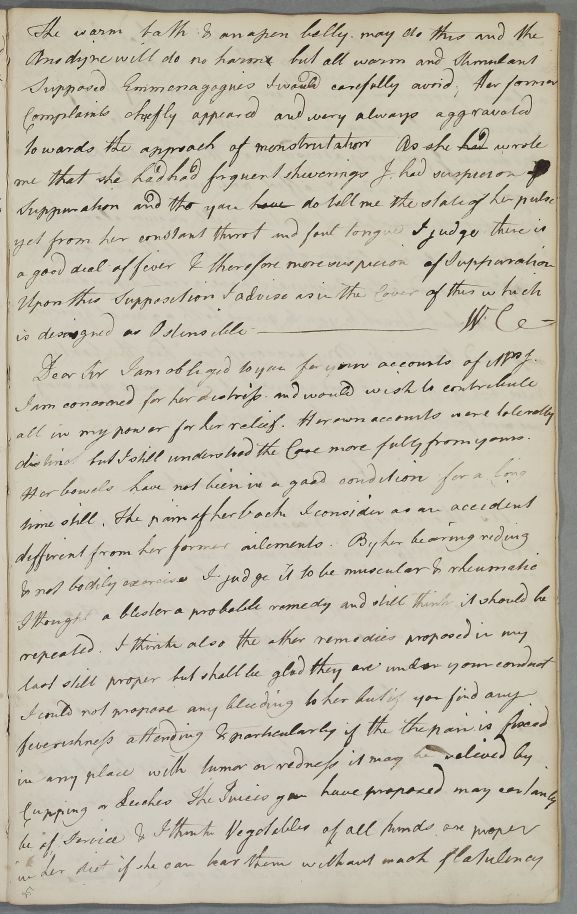 The warm bath & an open belly may do this and the
Anodyne will do no harm but all warm and stimulant
Supposed Emmenagogues I would carefully avoid, Her former
Complaints chiefly appeared and wery always aggravated
towards the approach of menstrutation As she had wrote
me that she had had frquent shiverings I had suspicion of
Suppuration and tho you have do tell me the state of her pulse
yet from her constant thirst and foul tongue I judge there is
a good deal of fever & therefore more suspicion of Suppuration
Upon this Supposition I advise as in the Cover of this which
is designed as Ostensible W C
Dear Sir I am obleged to you for your accounts of Mrs J.
I am concerned for her distriss and would wish to contribute
all in my power for her relief. Her own accounts were tolerably
distinct but I still understood the Case more fully from yours.
Her bowels have not been in a good condition for a long
time still. The pain of her back I consider as an accident
different from her former ailements. By her bearing riding
& not bodily exercise I judge it to be muscular & rheumatic
I thought a blester a probable remedy and still think it should be
repeated. I think also the other remedies proposed in my
last still proper but shall be glad they are under your conduct
I could not propose any bleeding to her but if you find any
feverishness attending & particularly if the the pain is fixed
in any place with tumor or redness it may be releved by
Cupping or Leeches The Juices you have proposed may certainly
be of Service & I think Vegetables of all kinds are proper
in her diet if she can bear them without much flatulency